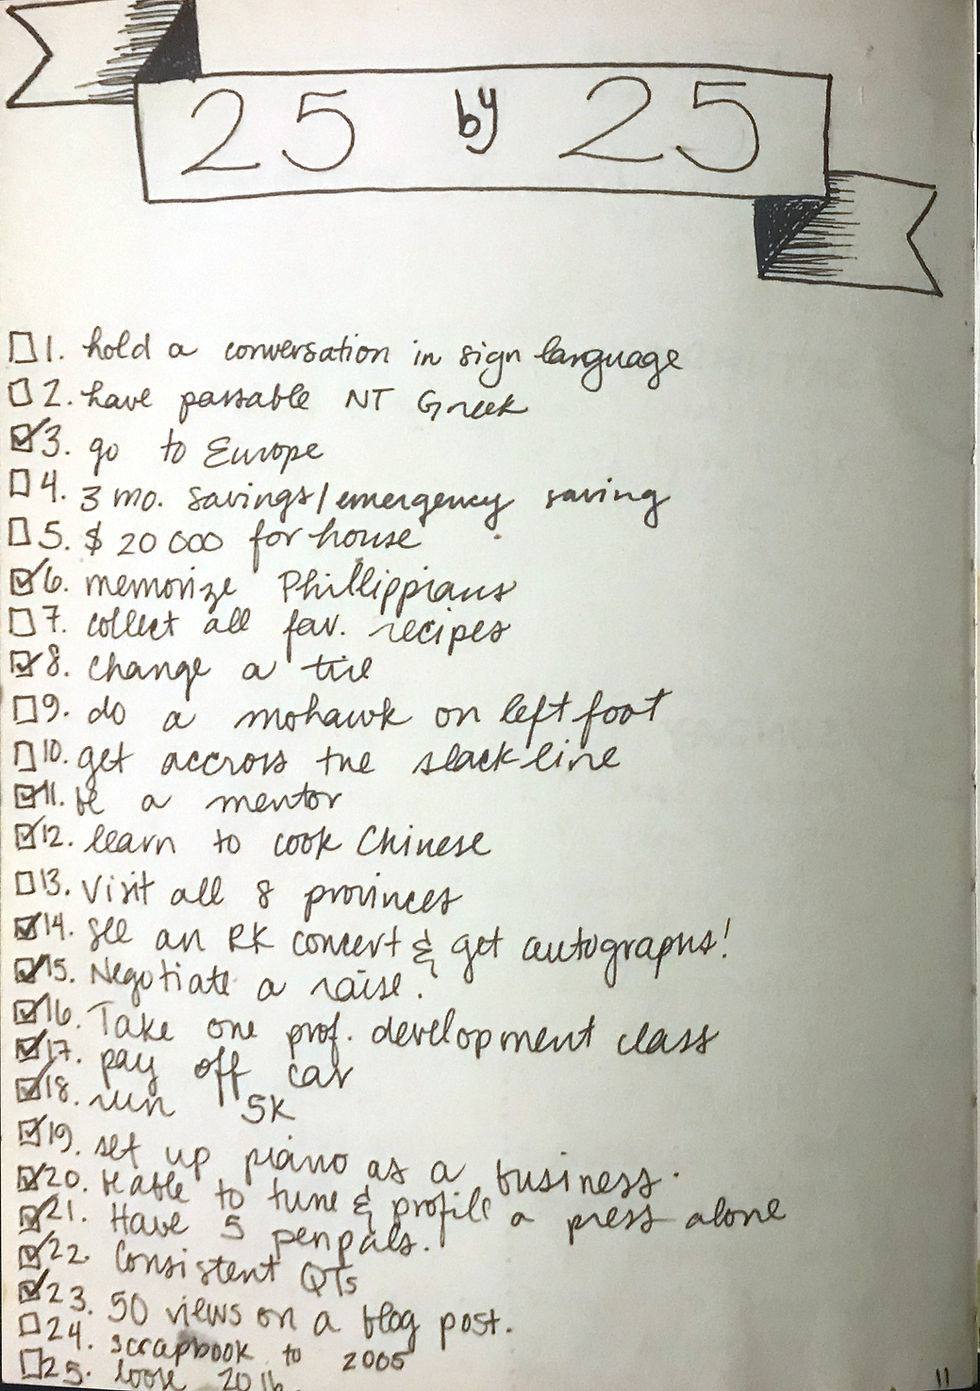 25 by 25
☐ 1. hold a conversation in sign language
☐ 2. have passable NT Greek
☑ 3. go to Europe
☐ 4. 3 mo. savings/emergency saving
☐ 5. $ 20 000 for house
☑ 6. memorize Phillippians
☐ 7. collect all fav. recipes
☑ 8. change a tire
☐ 9. do a mohawk on left foot
☐ 10. get accross the slack line
☑ 11. be a mentor
☑ 12. learn to cook Chinese
☐ 13. Visit all 8 provinces
☑ 14. See an RK concert & get autographs!
☑ 15. Negotiate a raise.
☑ 16. Take one prof. development class
☑ 17. pay off car
☑ 18. run 5K
☑ 19. set up piano as a business.
☑ 20. be able to tune & profile a press alone
☑ 21. Have 5 penpals.
☑ 22. Consistent QTs
☑ 23. 50 views on a blog post.
☐ 24. scrapbook to 2005
☐ 25. loose 20 lb.
11